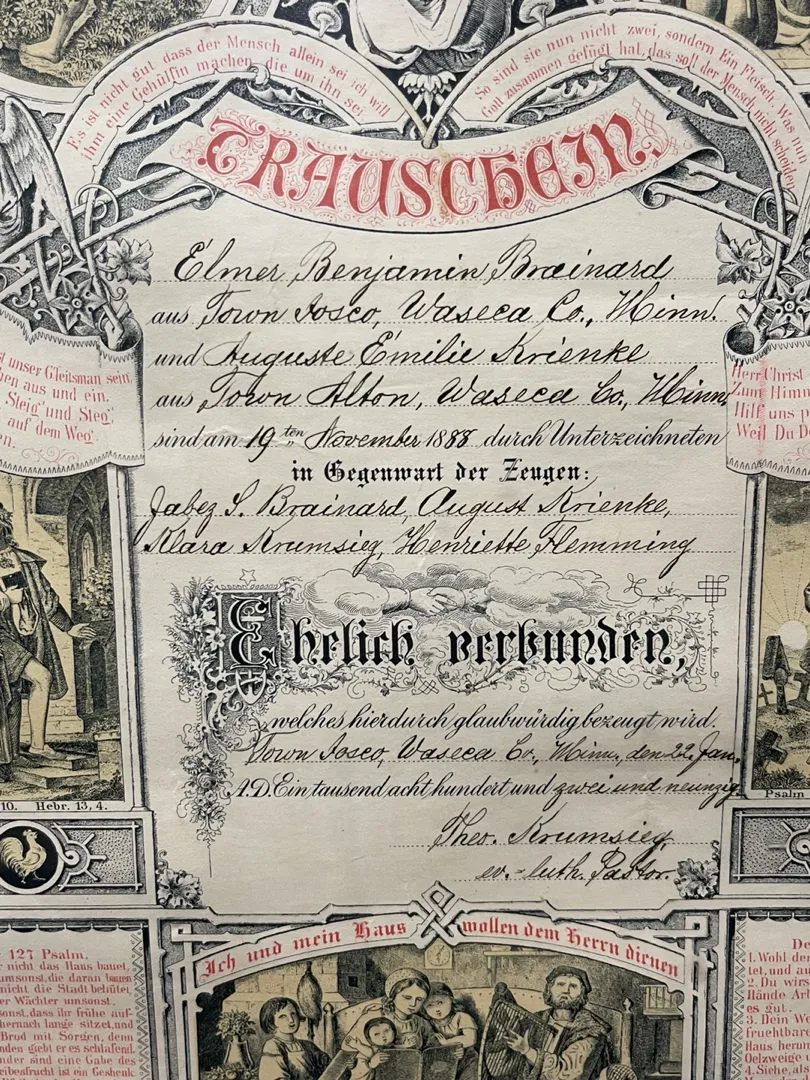 Es ist nicht gut dass der Mensch allein sei, ich will
ihm eine Gehülfin machen, die um ihn sei.
So sind sie nun nicht zwei, sondern Ein Fleisch. Was nun
Gott zusammen gefügt hat, das soll der Mensch nicht scheiden.
TRAUSCHEIN.
Elmer Benjamin Brainard
aus Town Iosco, Waseca Co., Minn.
und Auguste Emilie Krienke
aus Town Alton, Waseca Co., Minn.
sind am 19ten November 1888 durch Unterzeichneten
in Gegenwart der Zeugen:
Jabez S. Brainard, August Krienke,
Klara Krumsieg, Henriette Flemming
Ehelich verbunden,
welches hierdurch glaubwürdig bezeugt wird.
Town Iosco, Waseca Co., Minn., den 22. Jan.
A.D. Ein tausend acht hundert und zwei und neunzig
Theo. Krumsieg,
ev.-luth. Pastor.
unser G'leitsman sein,
aus und ein.
Steig' und Steg'
auf dem Weg
Herr Christ
Zum Him
Hilf uns
Weil Du
10. Hebr. 13, 4.
Psalm
Ich und mein Haus wollen dem Herrn dienen
127 Psalm.
nicht das Haus bauet,
umsonst, die daran bauen
nicht die Stadt behüte
Wächter umsonst.
umsonst, dass ihr frühe auf-
hernach lange sitzet, und
Brod mit Sorgen, denn
giebt er es schlafend.
sind eine Gabe des
ist ein Geschenk
1. Wohl
tet, und
2. Du wirs
Hände
es gut.
3. Dein
fruchtbar
Haus
Oelzweige
4. Siehe,